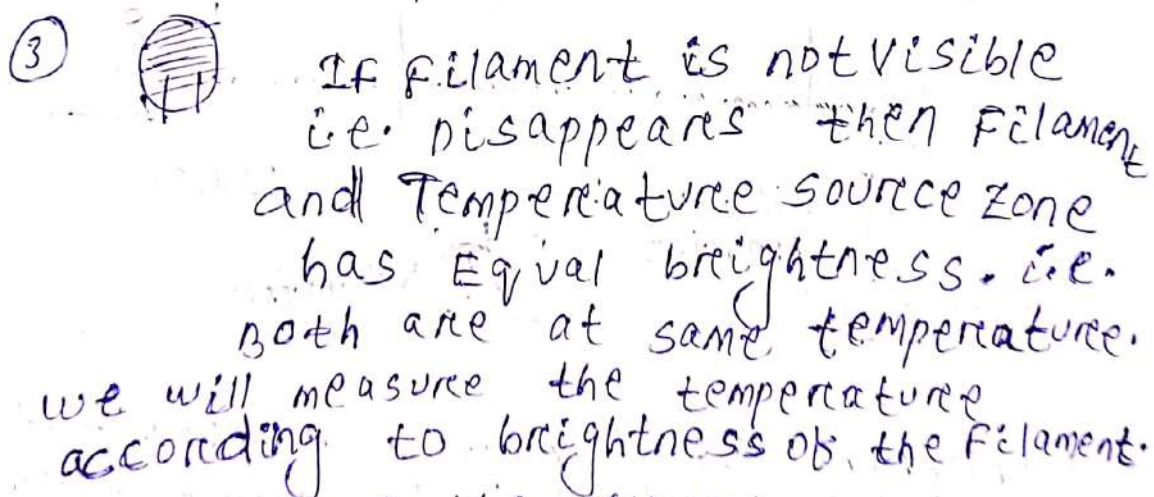 3 If Filament is not visible
i.e. Disappears then Filament
and Temperature source zone
has Equal brightness. i.e.
Both are at same temperature.
we will measure the temperature
according to brightness of the Filament.